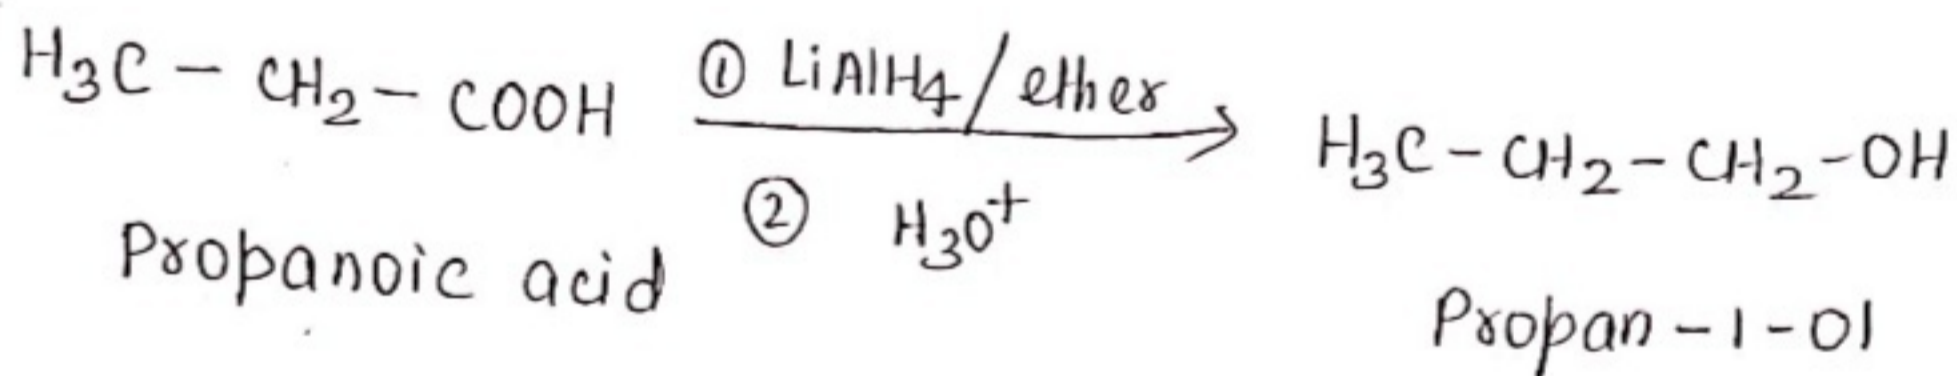 H₃C – CH₂ – COOH ① LiAlH₄/ether → H₃C – CH₂ – CH₂ – OH
② H₃O⁺
Propanoic acid
Propan – 1 – ol